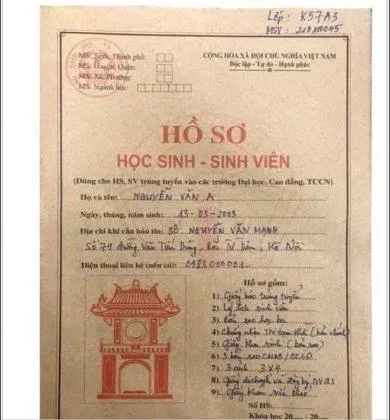 Lớp: K57A3
MSV: 210100095
MS: Tỉnh, Thành phố:
MS: Huyện, Quận:
MS: Xã, Phường:
MS: Ngành học:
CỘNG HÒA XÃ HỘI CHỦ NGHĨA VIỆT NAM
Độc lập - Tự do - Hạnh phúc
HỒ SƠ
HỌC SINH - SINH VIÊN
(Dùng cho HS, SV trúng tuyển vào các trường Đại học, Cao đẳng, TCCN)
Họ và tên: NGUYỄN VĂN A
Ngày, tháng, năm sinh: 13-03-2003
Địa chỉ khi cần báo tin: BỐ: NGUYỄN VĂN MẠNH
Số 79 đường Văn Tiến Dũng, Bắc Từ Liêm, Hà Nội
Điện thoại liên hệ (nếu có): 0983000001
Hồ sơ gồm:
1) Giấy báo trúng tuyển
2) Lý lịch sinh viên
3) Bản sao học bạ
4) Chứng nhận TN tạm thời (bản chính)
5) Giấy khai sinh (bản sao)
6) 3 bản sao CMND/CCCD
7) 3 ảnh 3x4
8) Giấy đăng ký NVQS
9) Giấy khác
Số HS:
Khóa học 20 20